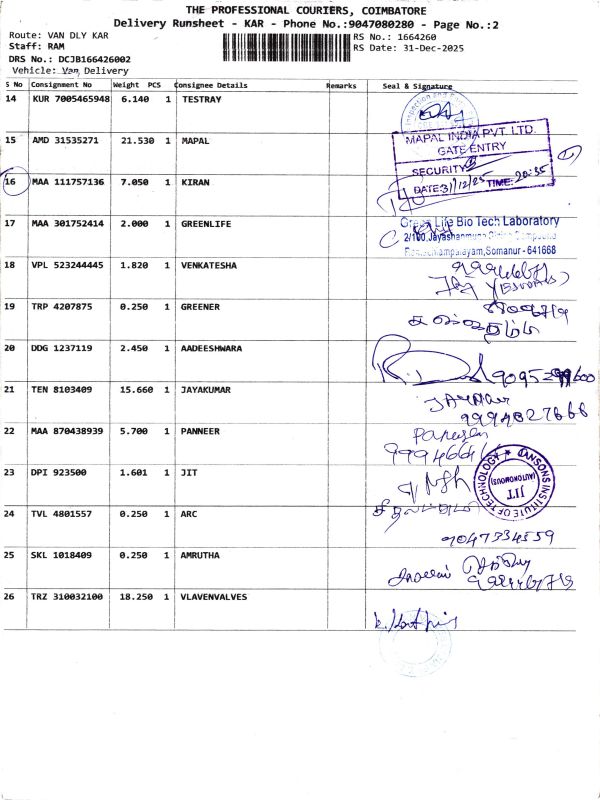 THE PROFESSIONAL COURIERS, COIMBATORE
Delivery Runsheet - KAR - Phone No.:9047080280 - Page No.:2
Route: VAN DLY KAR
Staff: RAM
DRS No.: DCJB166426002
Vehicle: Van Delivery
RS No.: 1664260
RS Date: 31-Dec-2025
S No Consignment No Weight PCS Consignee Details Remarks Seal & Signature
14 KUR 7005465948 6.140 1 TESTRAY
15 AMD 31535271 21.530 1 MAPAL
MAPAL INDIA PVT. LTD.
GATE ENTRY
SECURITY
DATE 31/12/25 TIME: 20:35
16 MAA 111757136 7.050 1 KIRAN
17 MAA 301752414 2.000 1 GREENLIFE
Green Life Bio Tech Laboratory
2/100, Jayashanmuga
Somanur - 641668
18 VPL 523244445 1.820 1 VENKATESHA
19 TRP 4207875 0.250 1 GREENER
20 DDG 1237119 2.450 1 AADEESHWARA
21 TEN 8103409 15.660 1 JAYAKUMAR
9994827666
22 MAA 870438939 5.700 1 PANNEER
23 DPI 923500 1.601 1 JIT
JANSONS INSTITUTE OF TECHNOLOGY
(AUTONOMOUS)
JIT
24 TVL 4801557 0.250 1 ARC
9047334559
25 SKL 1018409 0.250 1 AMRUTHA
26 TRZ 310032100 18.250 1 VLAVENVALVES